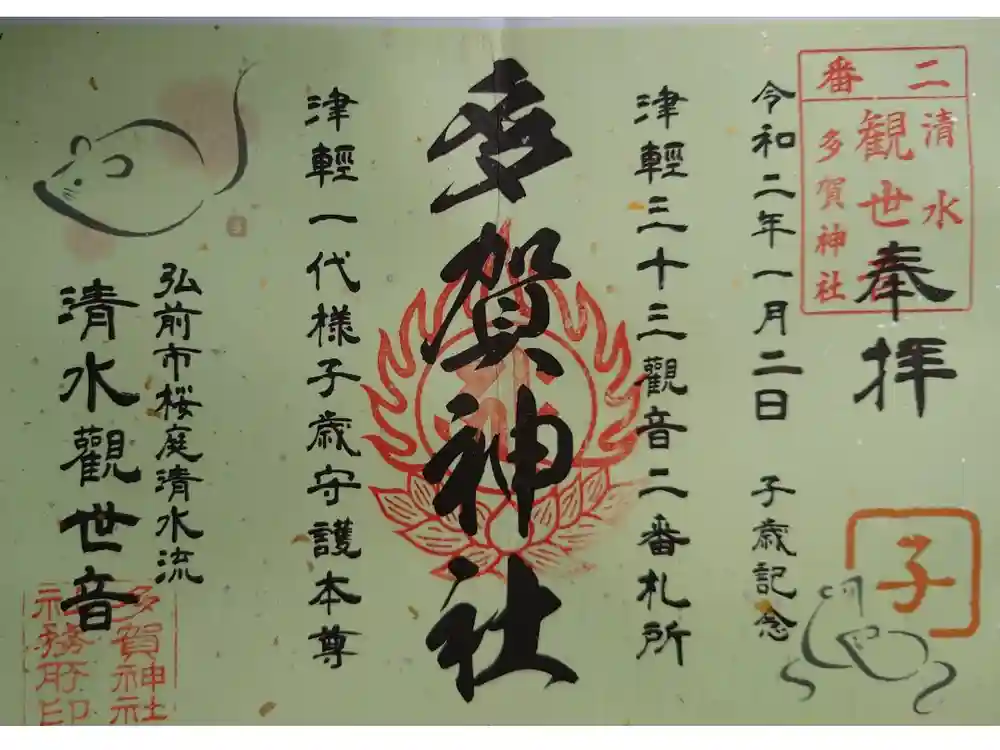 二番
清水
観世音
多賀神社
奉拝
子
令和二年一月二日 子歳記念
津輕三十三觀音二番札所
多賀神社
津輕一代様子歳守護本尊
弘前市桜庭清水流
清水觀世音
多賀神社
社務所印